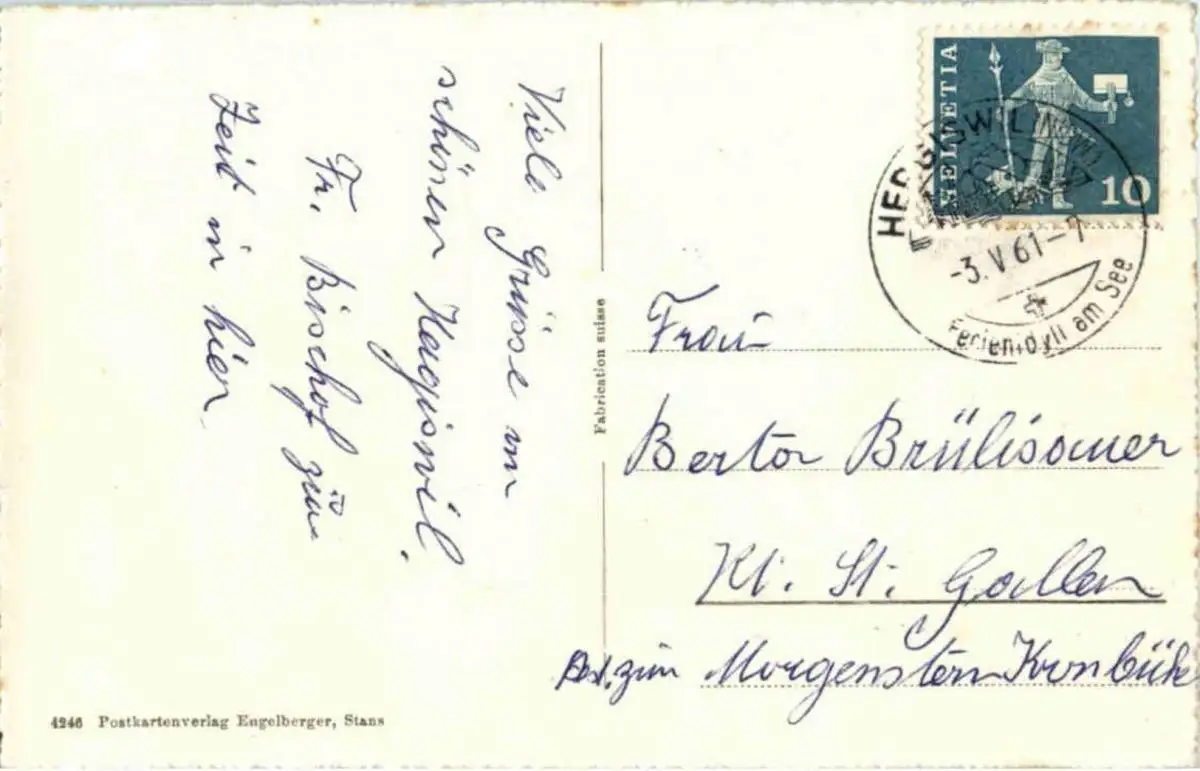 Viele Grüsse vom
schönen Hergiswil.
Fr. Bischof zur
Zeit in hier.
Fabrication suisse
4246 Postkartenverlag Engelberger, Stans
HELVETIA
10
HERGISWIL (NIDW)
-3.V.61-7
Ferienidyll am See
Frau
Berta Brülisauer
Kt. St. Gallen
Rest. zum Morgenstern Kronbühl